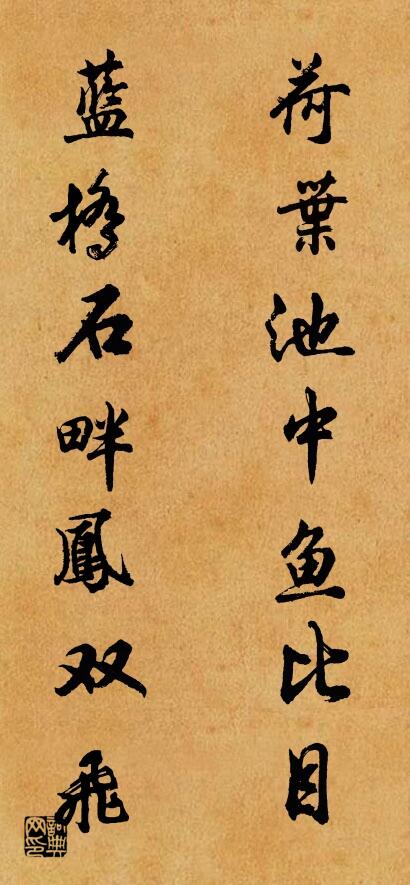 荷葉池中鱼比目
藍橋石畔鳳双飛